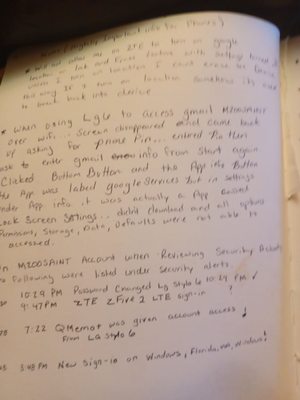 Notes (Highly Important info for Phones)
* will not allow me on ZTE to turn on google
location - Lock and Erase feature with setting turned
unless I turn on location I cant erase or
this way. If I turn on location somehow its
to break back into device
* When using Lg6 to access gmail M200SAINT
over wifi... Screen disappeared and came back
up asking for phone Pin... entered Pin then
ask to enter gmail info from start again
Clicked Bottom Button and the App info Button
the App was label google Services but in settings
under App info it was actually a App called
Lock Screen Settings... didnt download and all options
Permissions, Storage, Data, Defaults were not able to
accessed.
In M200SAINT Account when Reviewing Security Activity
Following were listed under security alerts.
10:29 PM Password Changed Lg Stylo 6 10:29 PM ✓
9:47PM ZTE ZFive 2 LTE sign-in ?
7:22 QMemo+ was given account access !
From LG Stylo 6
3:48 PM New Sign-in on Windows, Florida, USA, Windows!